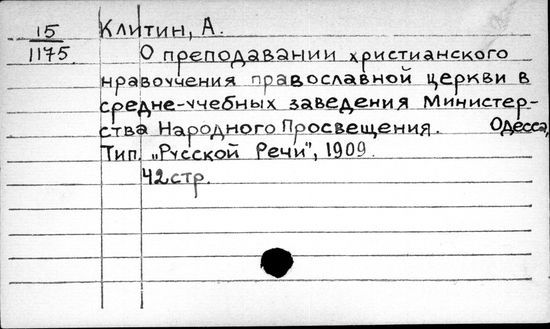 15
1175
Клитин, А.
О преподавании христианского
нравоучения православной церкви в
средне-учебных заведения Министер-
ства Народного Просвещения. Одесса,
Тип. „Русской Речи", 1909.
42 стр.